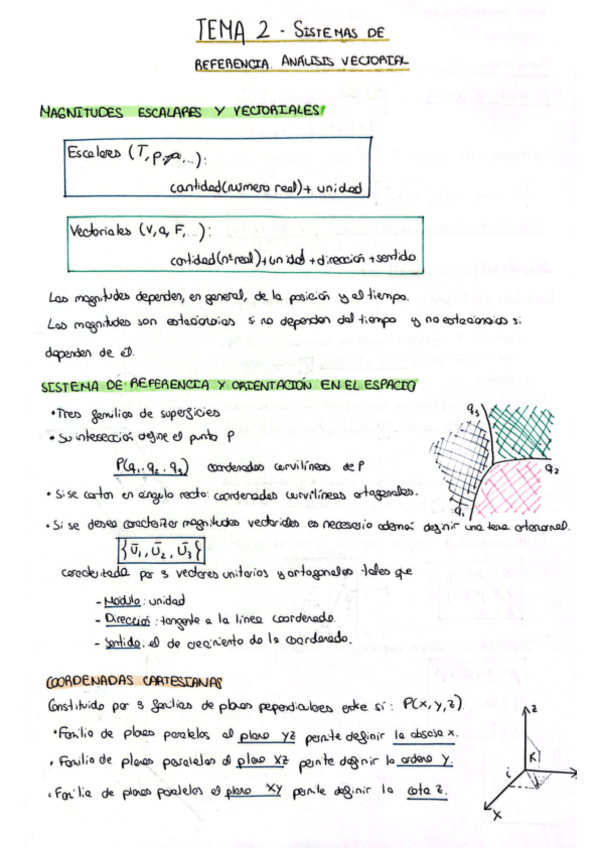 TEMA 2 - SISTEMAS DE
REFERENCIA. ANÁLISIS VECTORIAL
MAGNITUDES ESCALARES Y VECTORIALES
Escalares (T, p, ...):
cantidad (número real) + unidad
Vectoriales (v, a, F, ...):
cantidad (nº real) + unidad + dirección + sentido
Las magnitudes dependen, en general, de la posición y el tiempo.
Las magnitudes son estacionarias si no dependen del tiempo y no estacionarias si
dependen de él.
SISTEMA DE REFERENCIA Y ORIENTACIÓN EN EL ESPACIO
• Tres familias de superficies
• Su intersección define el punto P
P(q₁, q₂, q₃) coordenadas curvilíneas de P
• Si se cortan en ángulo recto: coordenadas curvilíneas ortogonales.
• Si se desea caracterizar magnitudes vectoriales es necesario además definir una terna ortonormal.
{ū₁, ū₂, ū₃}
caracterizada por 3 vectores unitarios y ortogonales tales que
- Módulo: unidad
- Dirección: tangente a la línea coordenada.
- Sentido: el de crecimiento de la coordenada.
q₃
q₂
q₁
COORDENADAS CARTESIANAS
Constituido por 3 familias de planos perpendiculares entre sí: P(x, y, z)
• Familia de planos paralelos al plano YZ permite definir la abscisa x.
• Familia de planos paralelos al plano XZ permite definir la ordena y.
• Familia de planos paralelos al plano XY permite definir la cota z.
z
K
i
x